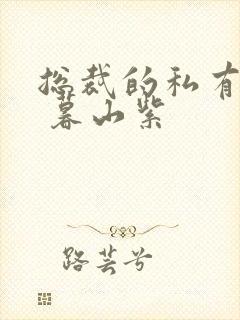 总裁的私有
暮山紫
路芸兮